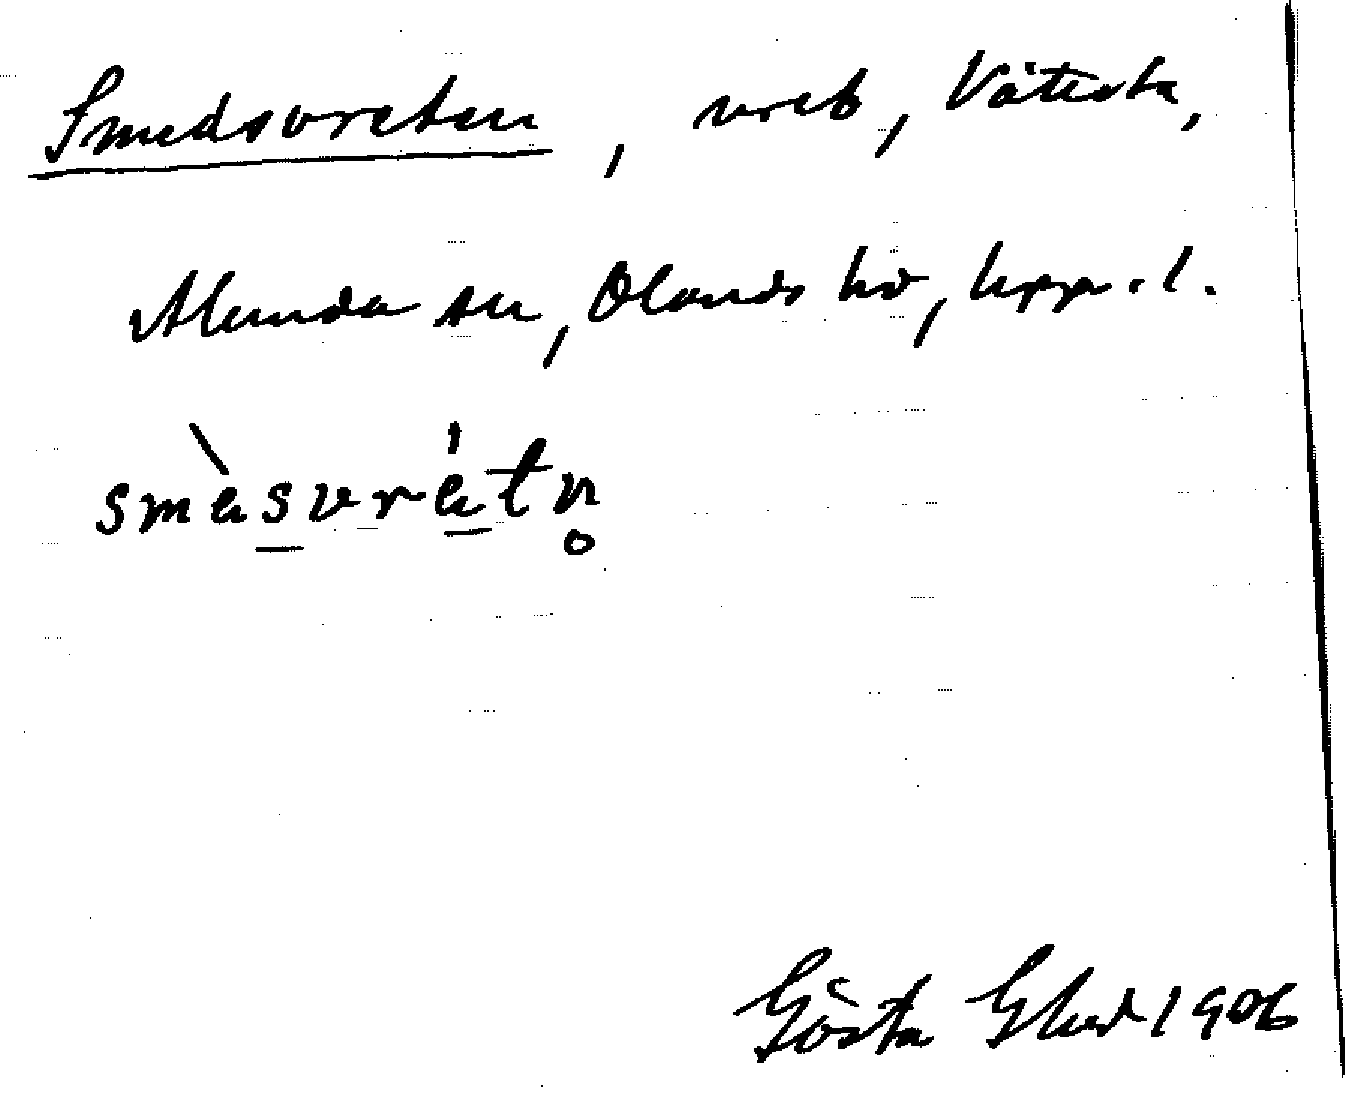 Smedsvreten, vret, Vättesta,
Alunda sn, Olands hd, Uppl.
smèsvrétn̥
Gösta 1906